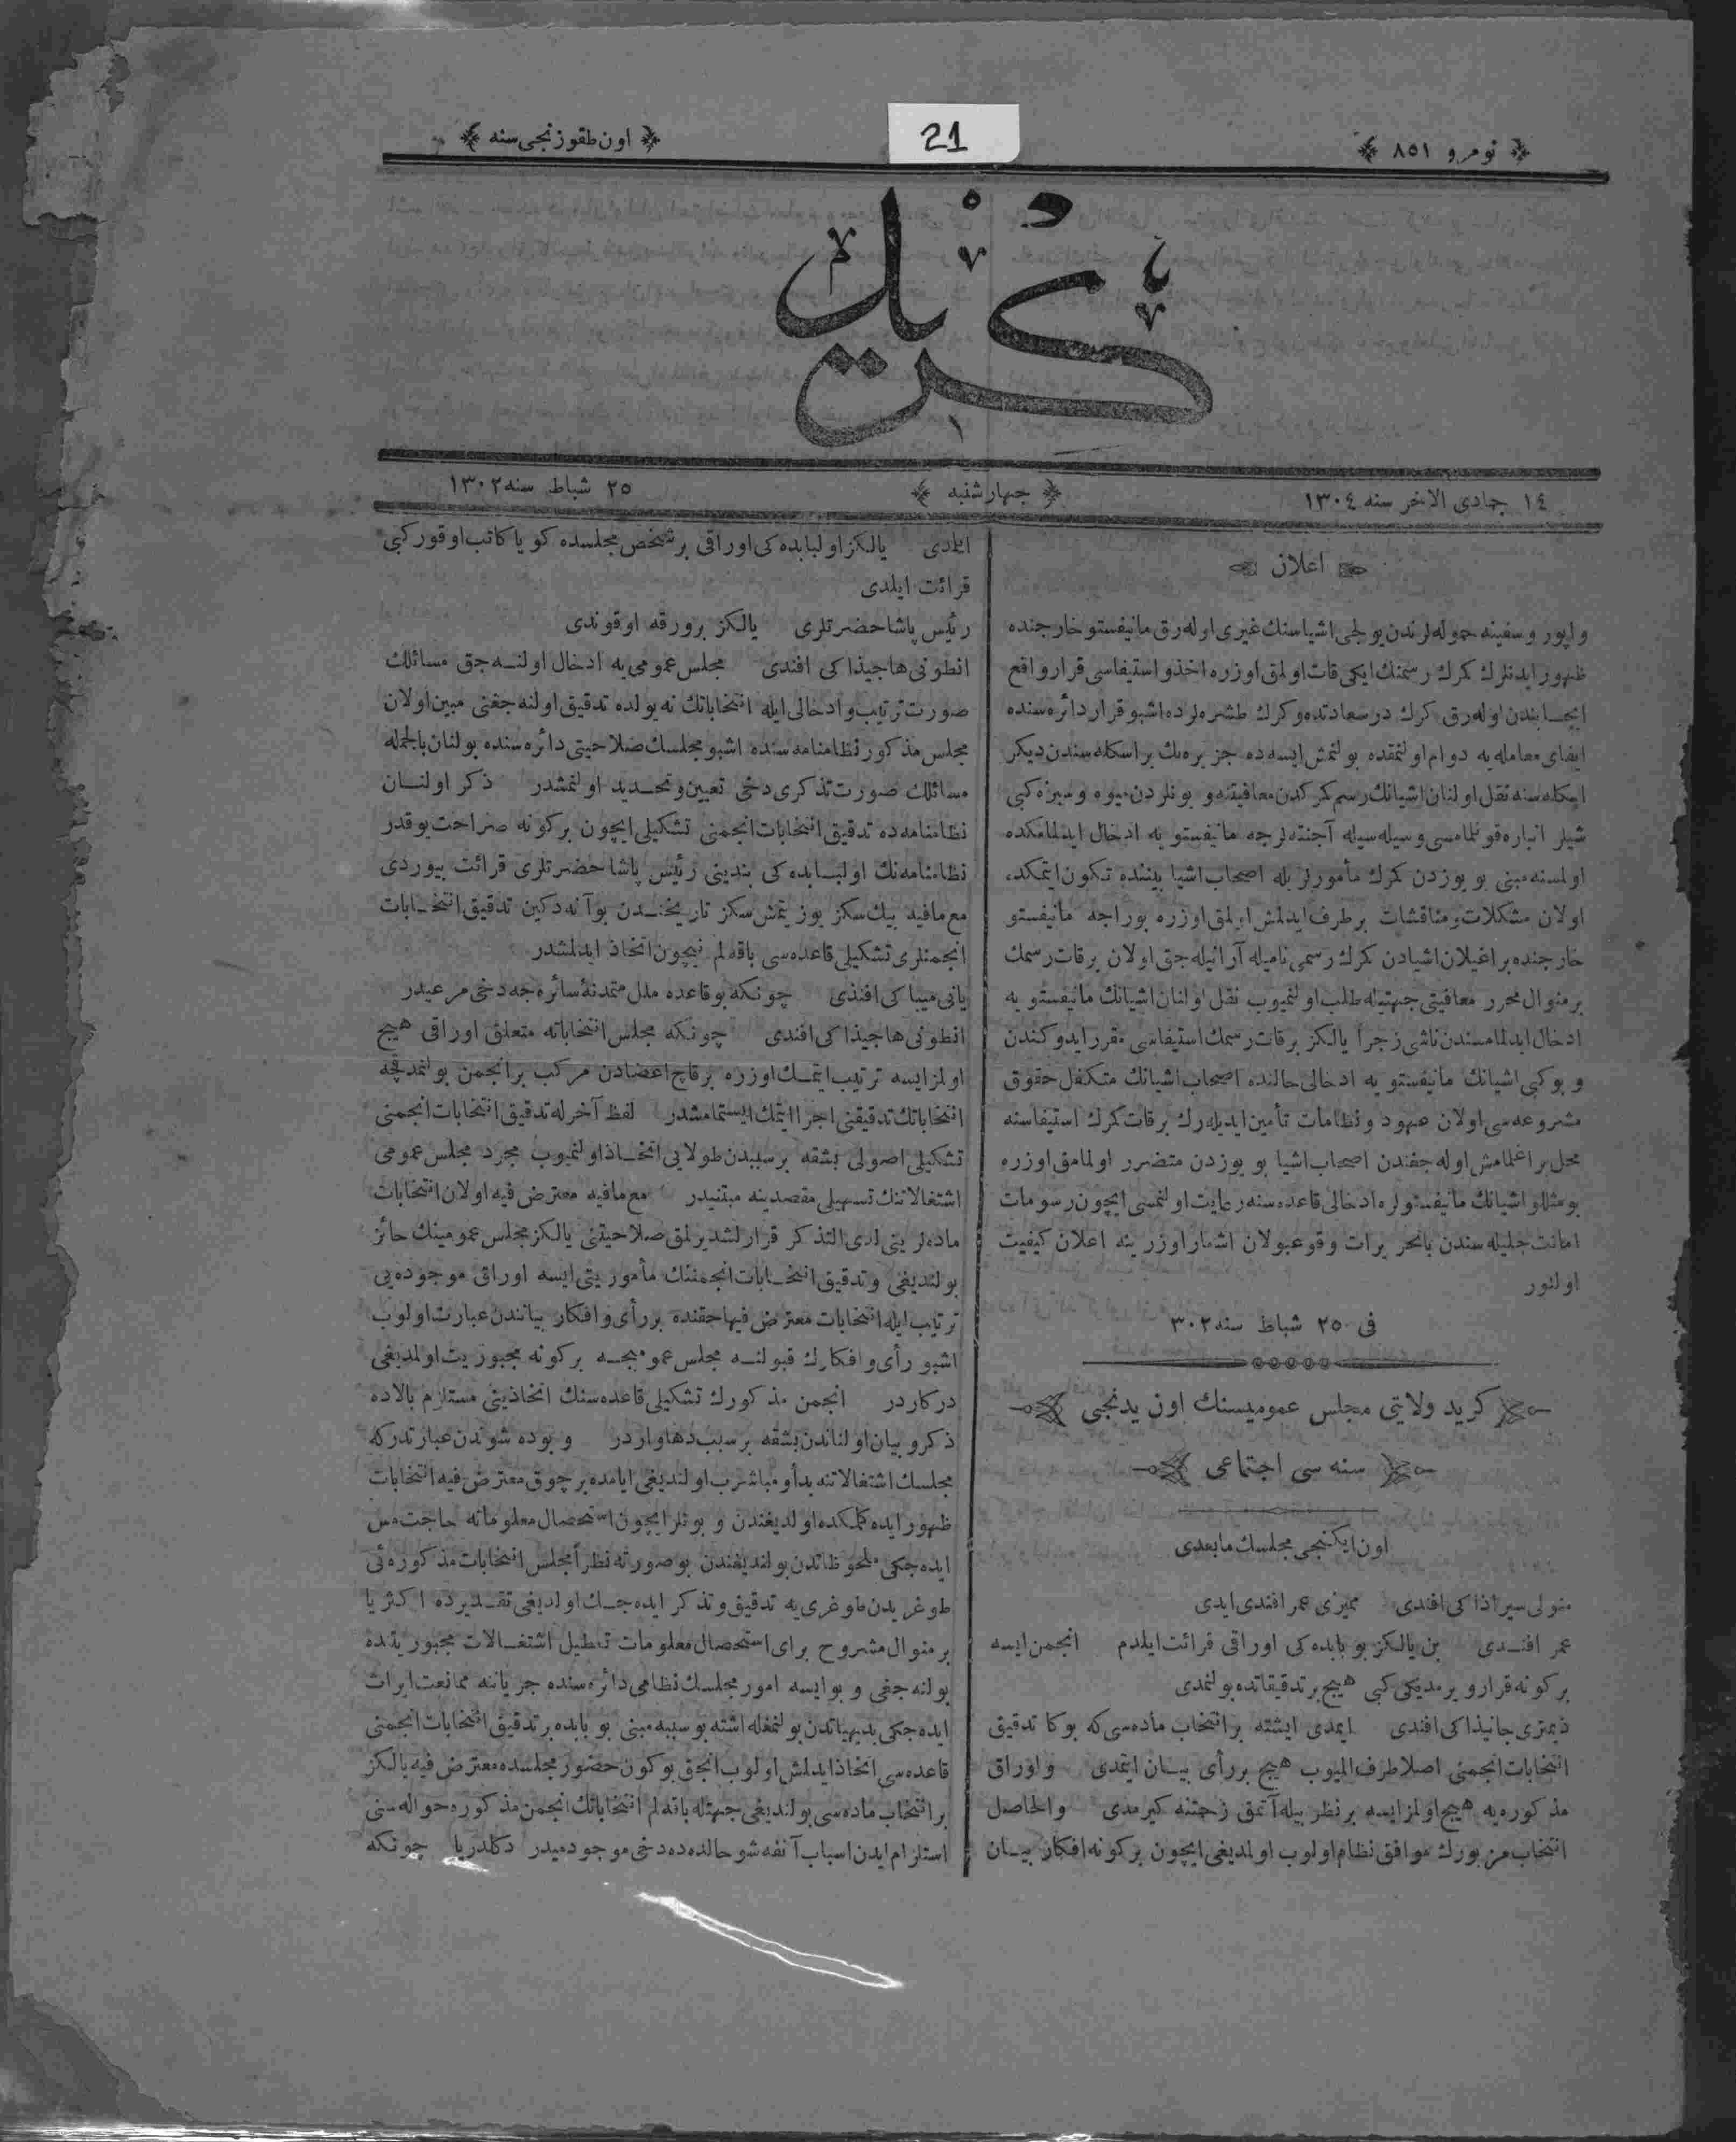 نومرو ٨٥١
21
اون طقوزنجی سنه
كريد
١٤ جمادی الاخر سنه ١٣٠٤
چهارشنبه
٢٥ شباط سنه ١٣٠٢
اعلان
واپور و سفینه حموله لرندن یولجی اشیاسنك غیری اوله رق مانیفستو خارجنده
ظهور ایدنلرك كمرك رسمنك ایكی قات اولمق اوزره اخذ و استیفاسی قرار واقع
ایجابندن اوله رق كرك درسعادتده و كرك طشره لرده اشبو قرار دائره سنده
ایفای معامله یه دوام اولنمقده بولنمش ایسه ده جزیره نك بر اسكله سندن دیكر
اسكله سنه نقل اولنان اشیانك رسم كمركدن معافیتنه و بونلردن میوه و سبزه كبی
شیلر انباره قونلمامسی وسیله سیله آجنته لرجه مانیفستو یه ادخال ایدلمامكده
اولمسنه مبنی بو یوزدن كمرك مأمورلریله اصحاب اشیا بیننده تكون ایتمكده
اولان مشكلات و مناقشات برطرف ایدلمش اولمق اوزره بوراجه مانیفستو
خارجنده براغیلان اشیادن كمرك رسمی نامیله آرانیله جق اولان برقات رسمك
بر منوال محرر معافیتی جهتیله طلب اولنمیوب نقل اولنان اشیانك مانیفستو یه
ادخال ایدلمامسندن ناشی زجراً یالكز برقات رسمك استیفاسی مقرر ایدوكندن
و بوكبی اشیانك مانیفستو یه ادخالی حالنده اصحاب اشیانك متكفل حقوق
مشروعه سی اولان عهود و نظامات تأمین ایدیله رك برقات كمرك استیفاسنه
محل براغلمامش اوله جغندن اصحاب اشیا بو یوزدن متضرر اولمامق اوزره
بو مثللو اشیانك مانیفستولره ادخالی قاعده سنه رعایت اولنمسی ایچون رسومات
امانت جلیله سندن بالتحریرات وقوعبولان اشعار اوزرینه اعلان كیفیت
اولنور
فی ٢٥ شباط سنه ٣٠٢
كرید ولایتی مجلس عمومیسنك اون یدنجی
سنه سی اجتماعی
اون ایكنجی مجلسك مابعدی
منولی سیراذاكی افندی ممیزی عمر افندی ایدی
عمر افندی بن یالكز بو بابده كی اوراقی قرائت ایلدم انجمن ایسه
بركونه قرار ویرمدیكی كبی هیچ بر تدقیقاتده بولنمدی
ذیمتری جانیذاكی افندی ایمدی ایشته بر انتخاب ماده سی كه بوكا تدقیق
انتخابات انجمنی اصلا طرف المیوب هیچ بر رأی بیان ایتمدی و اوراق
مذكوره یه هیچ اولمز ایسه بر نظر بیله آتمق زحمتنه كیرمدی والحاصل
انتخاب مزبورك موافق نظام اولوب اولمدیغی ایچون بركونه افكار بیان
ایلدی یالكز اولبابده كی اوراقی بر شخص مجلسده كویا كاتب اوقور كبی
قرائت ایلدی
رئیس پاشا حضرتلری یالكز بر ورقه اوقوندی
انطونی هاجیذاكی افندی مجلس عمومی یه ادخال اولنه جق مسائلك
صورت ترتیب و ادخالی ایله انتخاباتك نه یولده تدقیق اولنه جغنی مبین اولان
مجلس مذكور نظامنامه سنده اشبو مجلسك صلاحیتی دائره سنده بولنان بالجمله
مسائلك صورت تذكری دخی تعیین و تحدید اولنمشدر ذكر اولنان
نظامنامه ده تدقیق انتخابات انجمنی تشكیلی ایچون بركونه صراحت یوقدر
نظامنامه نك اولبابده كی بندینی رئیس پاشا حضرتلری قرائت بیوردی
مع مافیه بیك سكز یوز یتمش سكز تاریخندن بو آنه دكین تدقیق انتخابات
انجمنلری تشكیلی قاعده سی باقه لم نیچون اتخاذ ایدلمشدر
یانی میباكی افندی چونكه بو قاعده ملل متمدنهٔ سائره جه دخی مرعیدر
انطونی هاجیذاكی افندی چونكه مجلس انتخاباته متعلق اوراقی هیچ
اولمز ایسه ترتیب ایتمك اوزره بر قاچ اعضادن مركب بر انجمن بولنمدقچه
انتخاباتك تدقیقنی اجرا ایتمك ایستمامشدر لفظ آخرله تدقیق انتخابات انجمنی
تشكیلی اصولی بشقه بر سببدن طولایی اتخاذ اولنمیوب مجرد مجلس عمومی
اشتغالاتنك تسهیلی مقصدینه مبتنیدر مع مافیه معترض فیه اولان انتخابات
ماده لرینی لدی التذكر قرارلشدیرلمق صلاحیتنی یالكز مجلس عمومینك حائز
بولندیغی و تدقیق انتخابات انجمننك مأموریتی ایسه اوراق موجوده یی
ترتیب ایله انتخابات معترض فیها حقنده بر رأی و افكار بیانندن عبارت اولوب
اشبو رأی و افكارك قبولنه مجلس عمومیجه بركونه مجبوریت اولمدیغی
دركاردر انجمن مذكورك تشكیلی قاعده سنك اتخاذینی مستلزم بالاده
ذكر و بیان اولناندن بشقه بر سبب دها واردر و بوده شوندن عبارتدركه
مجلسك اشتغالاتنه بدأ و مباشرت اولندیغی ایامده بر چوق معترض فیه انتخابات
ظهور ایده كلمكده اولدیغندن و بونلر ایچون استحصال معلوماته حاجت مس
ایده جكی ملحوظاتدن بولندیغندن بو صورته نظراً مجلس انتخابات مذكوره ئی
طوغریدن طوغری یه تدقیق و تذكر ایده جك اولدیغی تقدیرده اكثریا
بر منوال مشروح برای استحصال معلومات تعطیل اشتغالات مجبوریتنده
بولنه جغی و بو ایسه امور مجلسك نظامی دائره سنده جریاننه ممانعت ایراث
ایده جكی بدیهیاتدن بولنمغله اشته بو سببه مبنی بو بابده بر تدقیق انتخابات انجمنی
قاعده سی اتخاذ ایدلمش اولوب انجق بوكون حضور مجلسده معترض فیه یالكز
بر انتخاب ماده سی بولندیغی جهتله باقه لم انتخاباتك انجمن مذكوره حواله سنی
استلزام ایدن اسباب آنفه شو حالده ده دخی موجودمیدر دكلدر یا چونكه